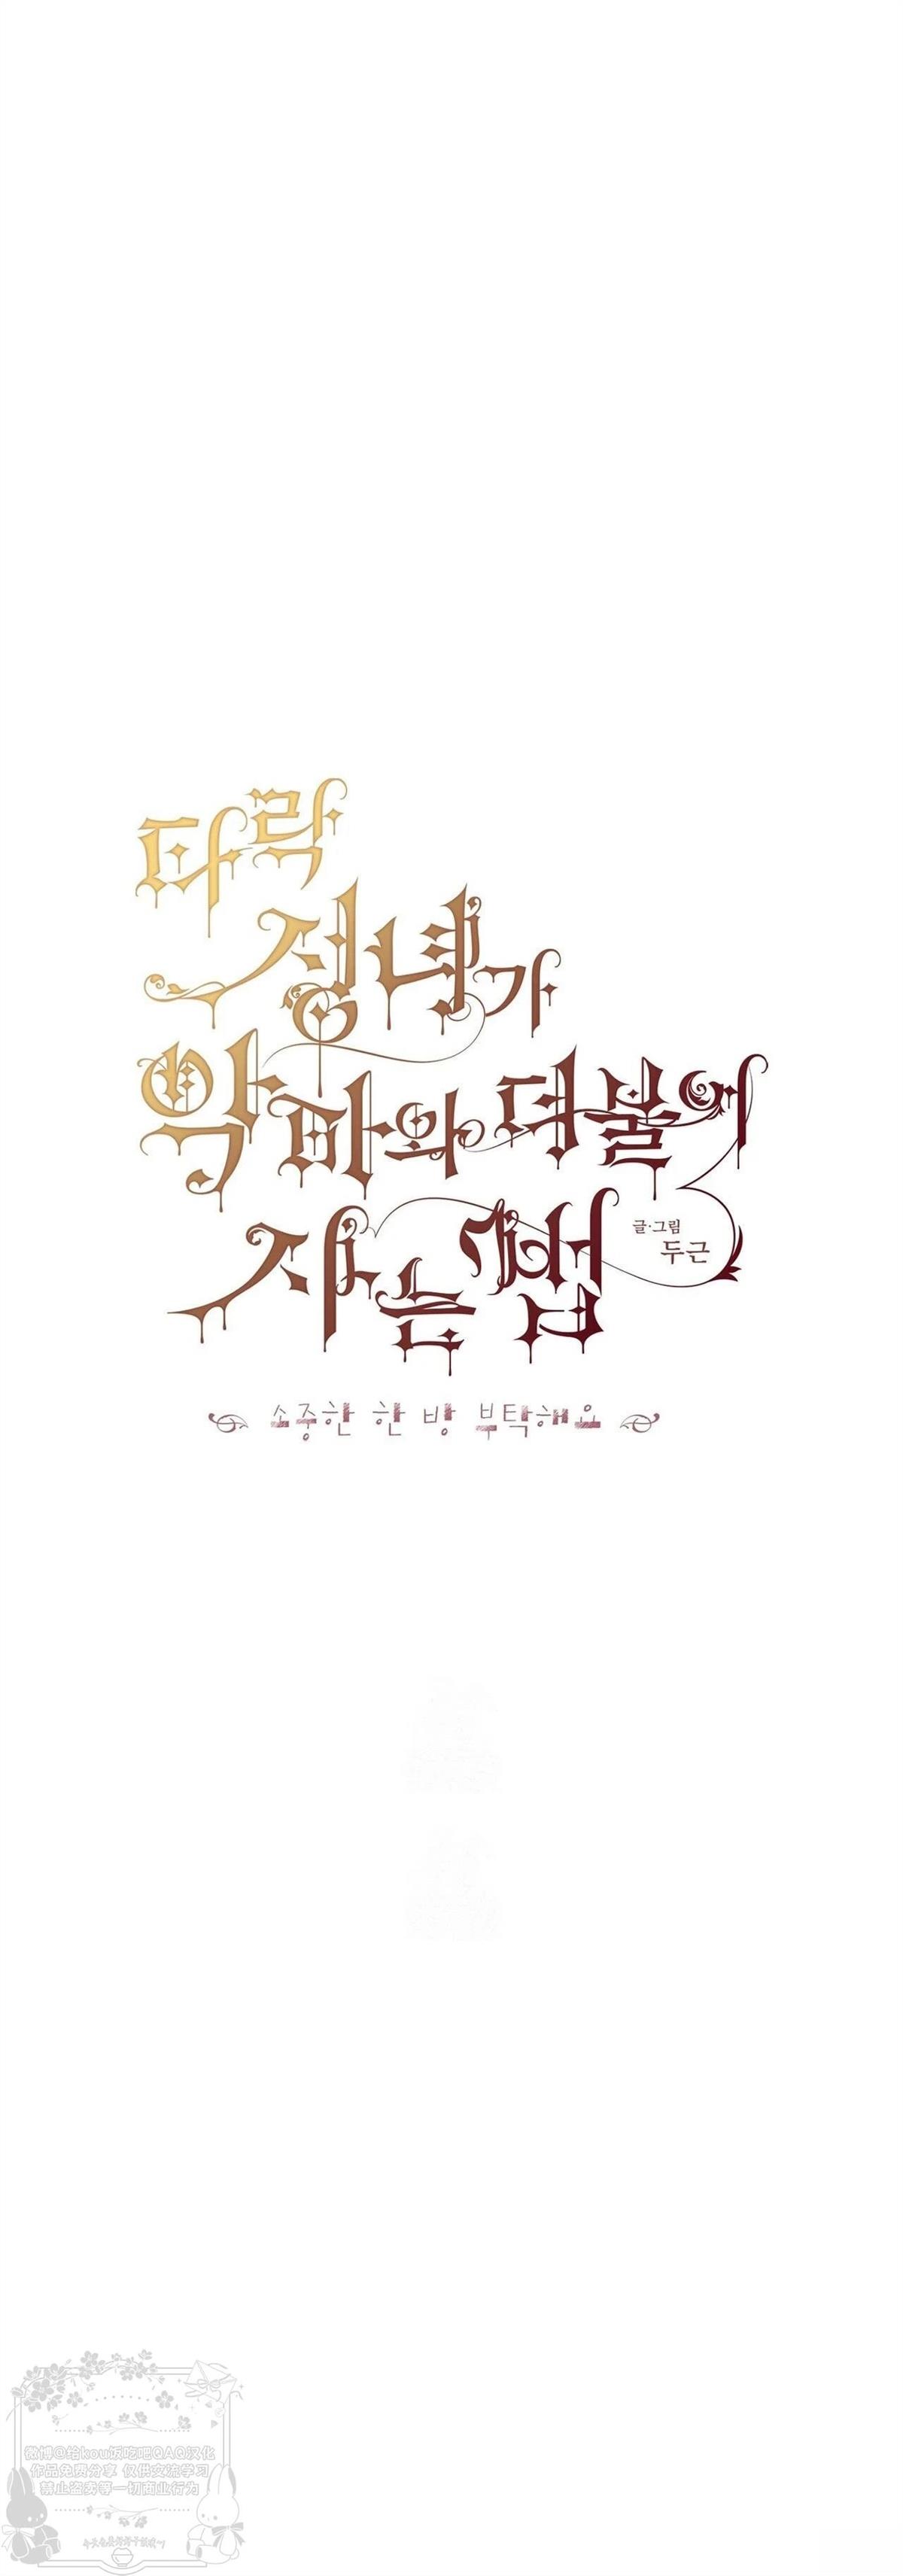 타락
성녀가
악마와 더불어
사는 법
글·그림
두근
소중한 한 방 부탁해요
微博@给kou饭吃吧QAQ汉化
作品免费分享 仅供交流学习
禁止盗卖等一切商业行为